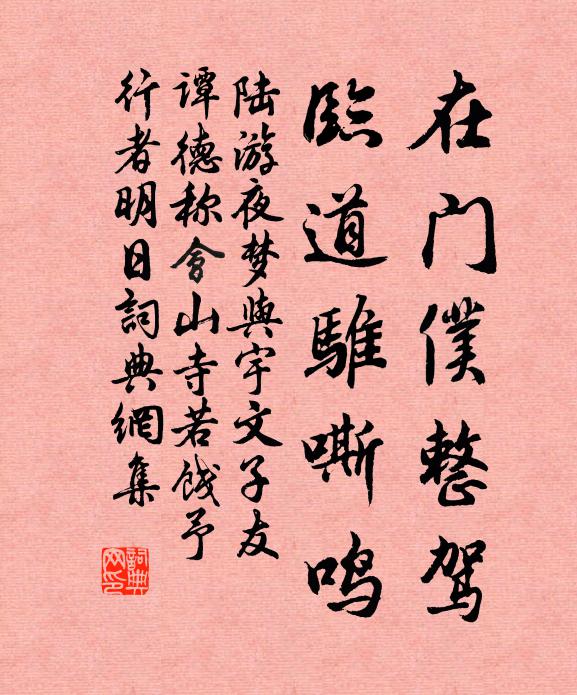 在门僕整驾
臨道騅嘶鸣
陆游夜梦與宇文子友
谭德称會山寺若餞予
行者明日詞典網集
詞典
网印